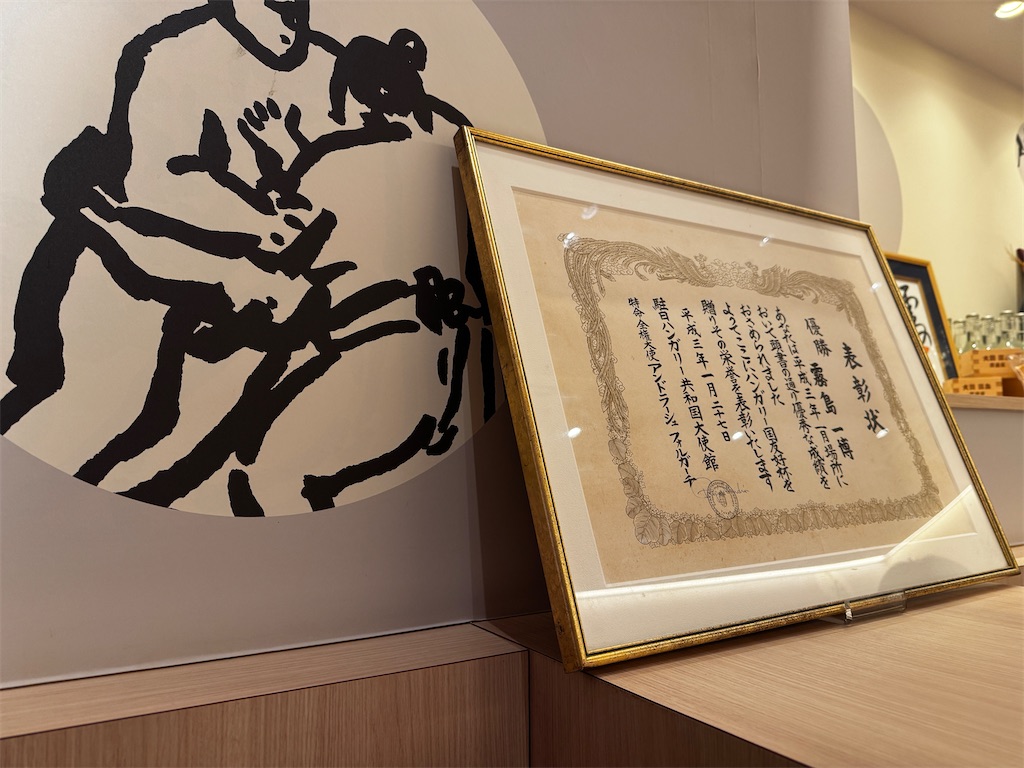 表彰状
優勝 霧島一博
あなたは平成三年一月場所に
おいて頭書の通り優秀な成績を
おさめられました
よってここにハンガリー国友好杯を
贈りその栄誉を表彰いたします
平成三年一月二十七日
駐日ハンガリー共和国大使館
特命全権大使アンドラーシュ フォルガーチ